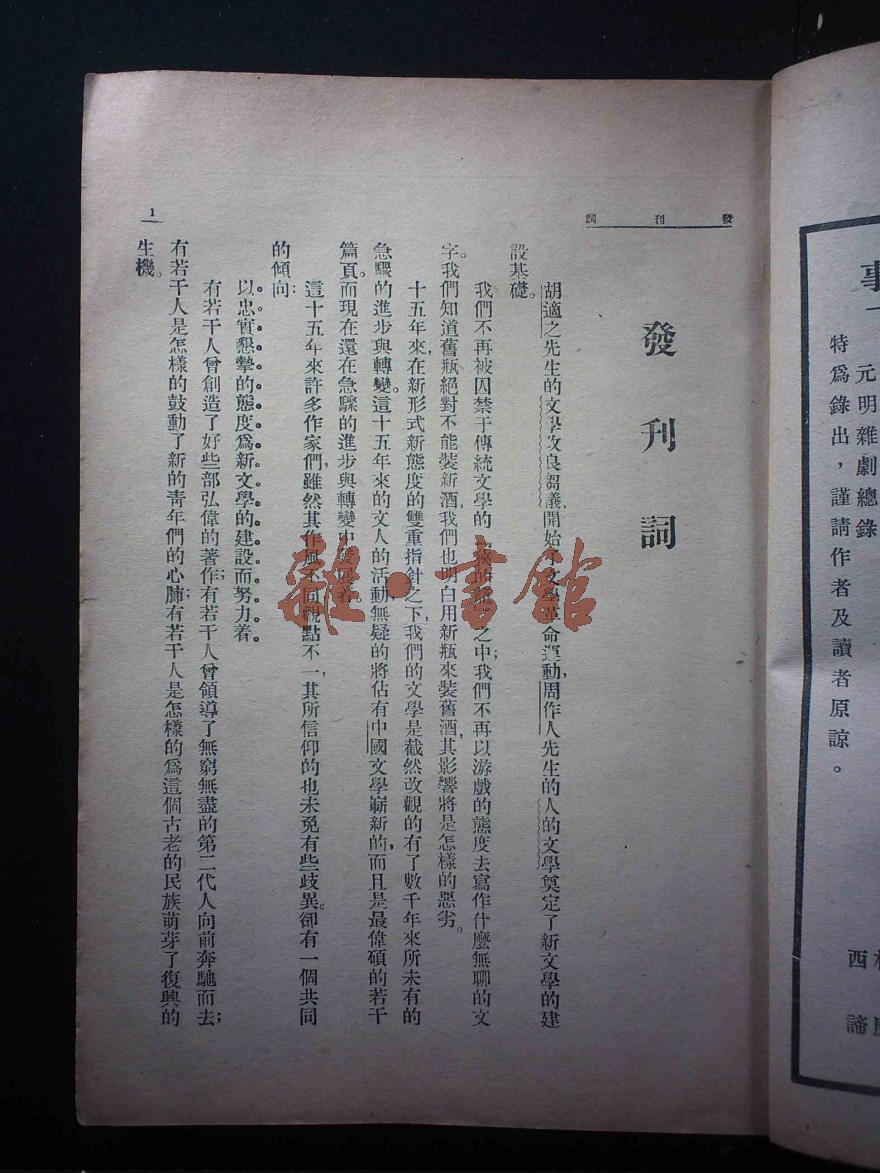 發刊詞
發刊詞
胡適之先生的文學改良芻議，開始了文學革命運動，周作人先生的人的文學奠定了新文學的建
設基礎。
我們不再被囚禁于傳統文學的之中；我們不再以游戲的態度去寫作什麼無聊的文
字。我們知道舊瓶絕對不能裝新酒，我們也明白用新瓶來裝舊酒，其影響將是怎樣的惡劣。
十五年來，在新形式新態度的雙重指針之下，我們的文學是截然改觀的有了數千年來所未有的
急驟的進步與轉變。這十五年來的文人的活動，無疑的將佔有中國文學嶄新的，而且是最偉碩的若干
篇頁。而現在還在急驟的進步與轉變中發展着。
這十五年來許多作家們，雖然其作風不同，觀點不一，其所信仰的也未免有些歧異。卻有一個共同
的傾向：
以忠實懇摯的態度爲新文學的建設而努力着。
有若干人曾創造了好些部弘偉的著作；有若干人曾領導了無窮無盡的第二代人向前奔馳而去；
有若干人是怎樣的鼓動了新的青年們的心肺；有若干人是怎樣的爲這個古老的民族萌芽了復興的
生機。
1
事
一 元明雜劇總錄
特爲錄出，謹請作者及讀者原諒。
西諦
雜·書館